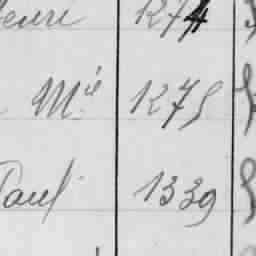 Henri 1274
Mie 1275
Paul 1339